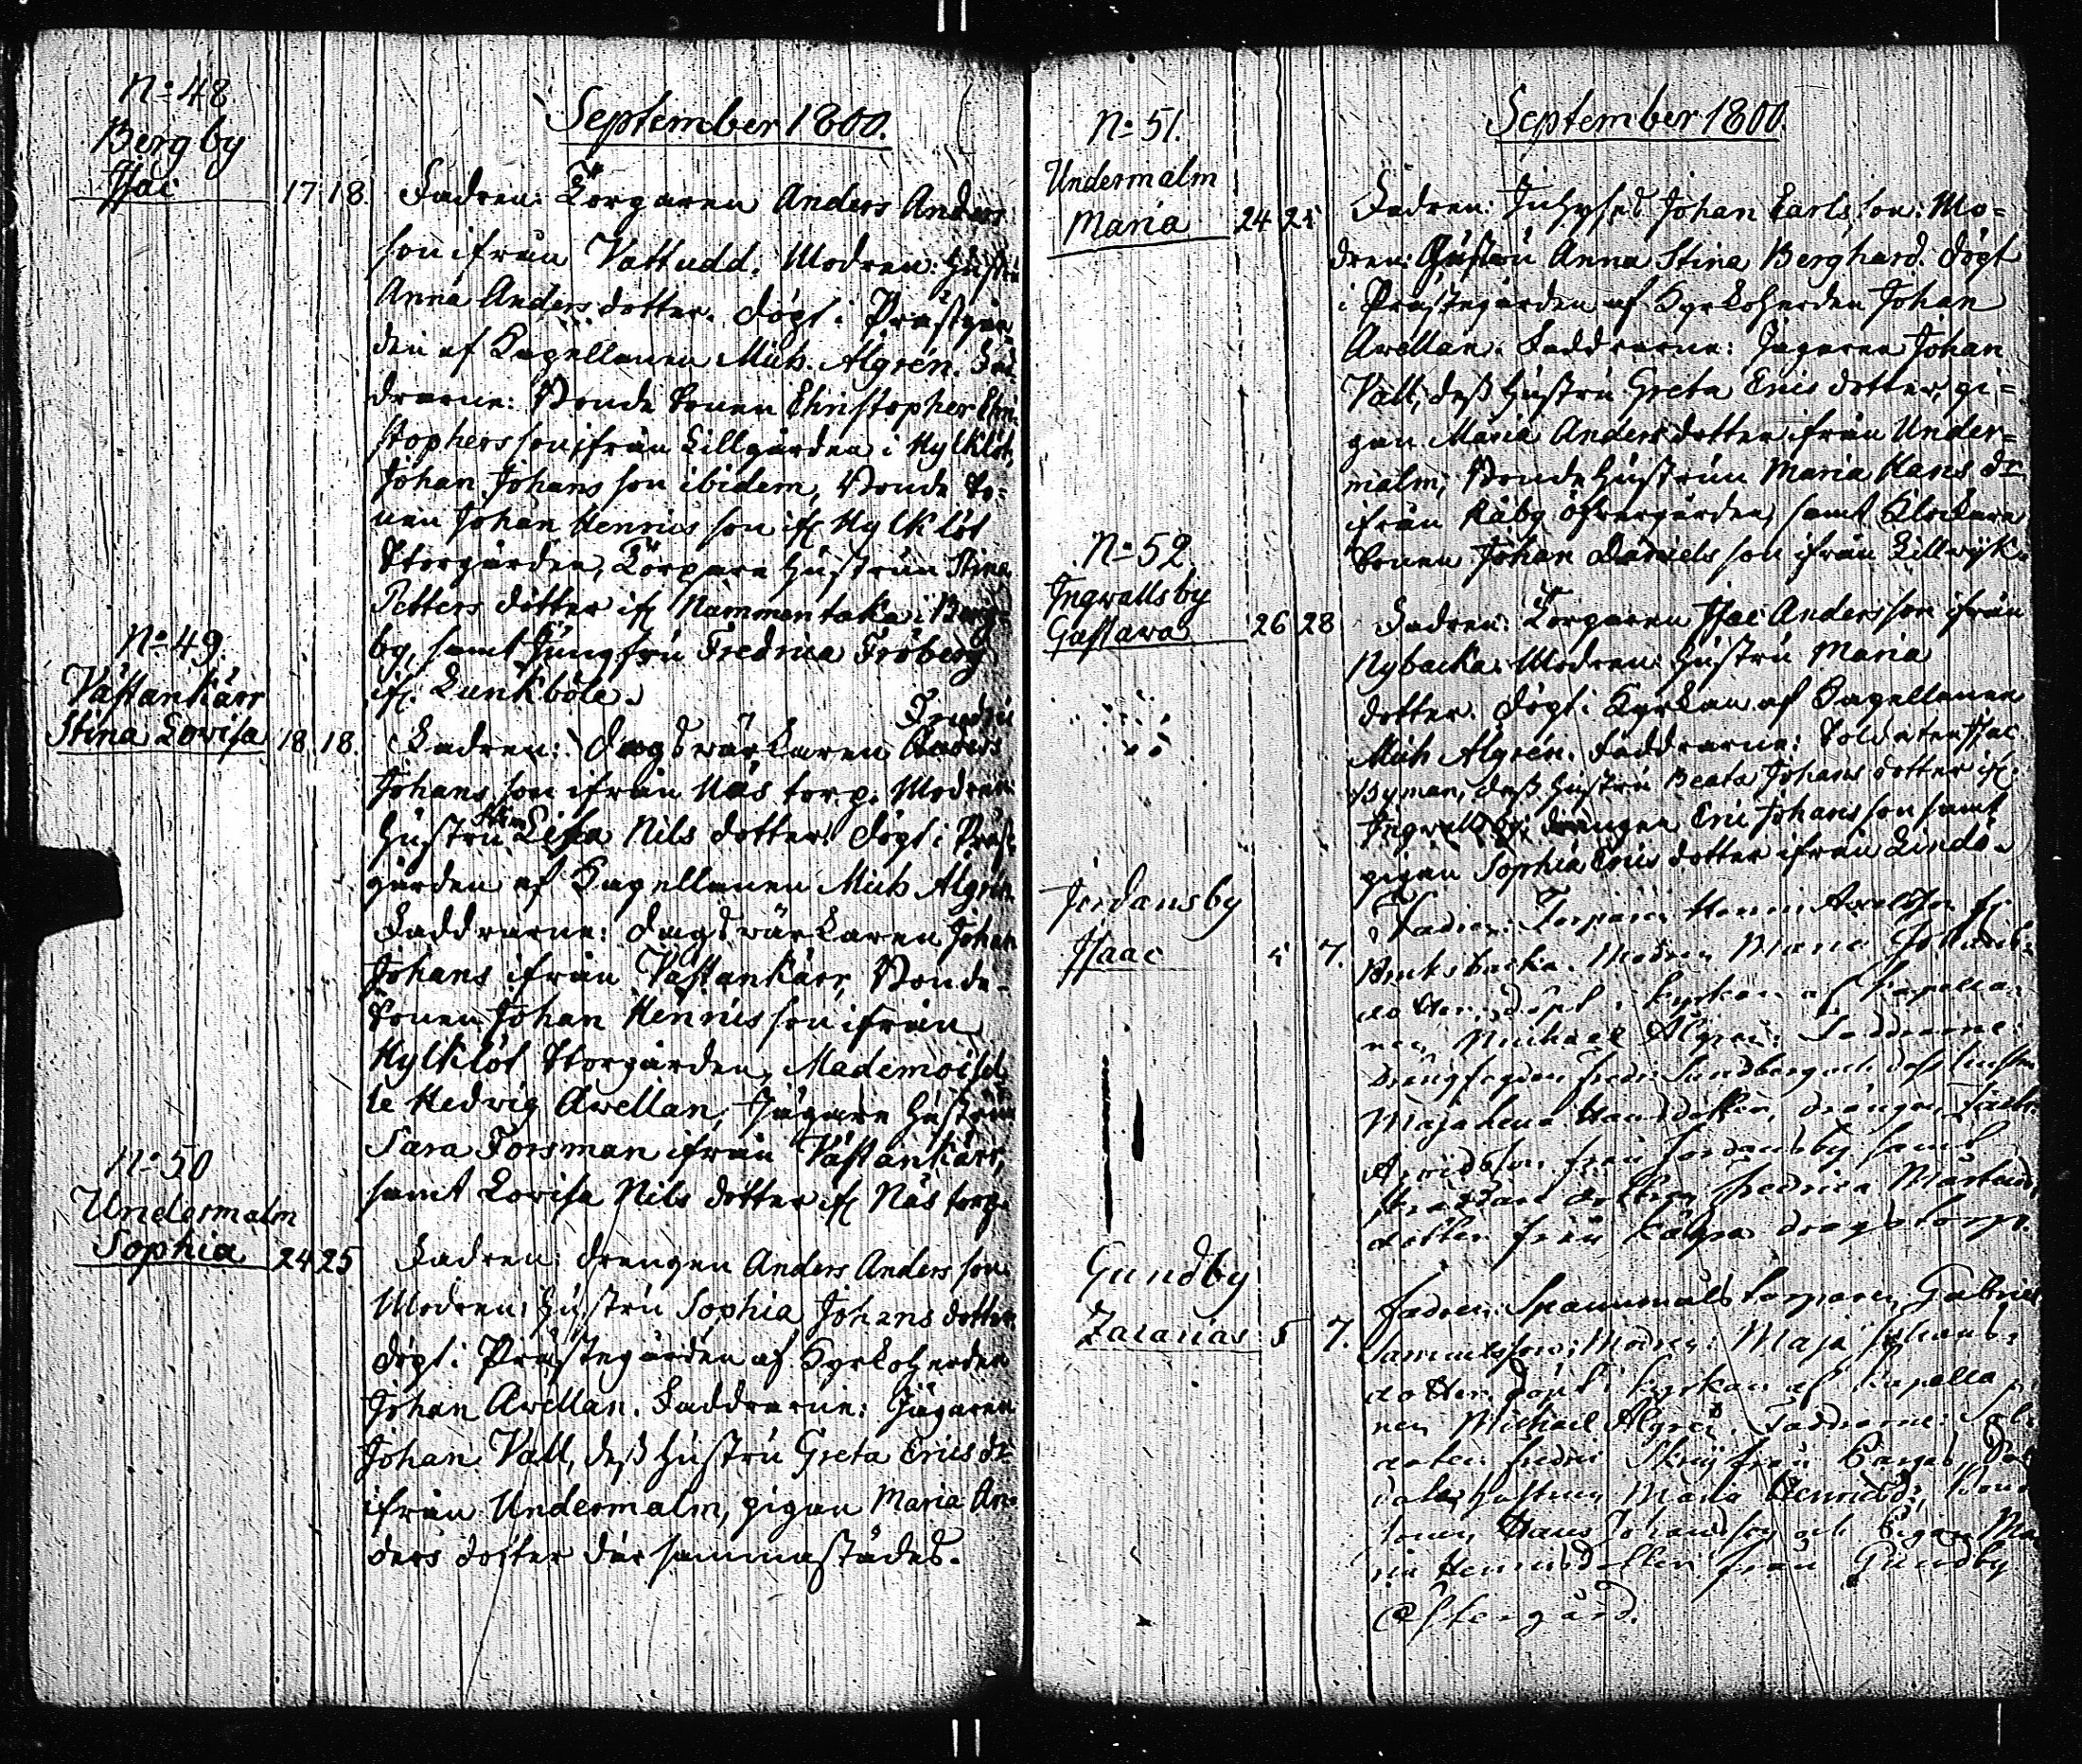 No 48
Bergby
Isac 17 18.
September 1800.
Fadren: Torparen Anders Anders
son ifrån Vattudd. Modren: Hustru
Anna Anders dotter. döpt i Prästgår
den af Kapellanen Mich. Algrén. Fad
drarne: Bonde Sonen Christopher Chri
stophers son ifrån Lillgården i Hylklöt,
Johan Johans son ibidem, Bonde So=
nen Johan Henrics son if. Hylklöt
Storgården, Torpare Hustrun Stina
Petters dotter if. Nammentaka i Berg=
by, samt Jungfru Fredrica Fröberg
if. Lunkböle.
No 49.
Västankärr
Stina Lovisa 18. 18.
Fredric
Fadren: Dagsvärkaren Anders
Johans son ifrån Näs torp. Modren:
Hustru Stina Lisa Nils dotter. döpt i Präst
gården af Kapellanen Mich Algrén.
Faddrarne: Dagsvärkaren Johan
Johans ifrån Västankärr, Bonde-
Sonen Johan Henrics son ifrån
Hylklöt Storgården, Mademoisel
le Hedvig Avellan, Jägare Hustrun
Sara Forsman ifrån Västankärr,
samt Lovisa Nils dotter if. Näs torp.
No 50
Undermalm
Sophia 24 25
Fadren: drengen Anders Anders son.
Modren: Hustru Sophia Johans dotter
döpt i Prästegården af Kyrkoherden
Johan Avellan. Faddrarne: Jägaren
Johan Vall, dess Hustru Greta Erics dr
ifrån Undermalm, pigan Maria An=
ders dotter där sammastädes.
No 51.
Undermalm
Maria 24 25
September 1800.
Fadren: Inhyses Johan Carls son: Mo=
dren: Hustru Anna Stina Berghard. döpt
i Prästegården af Kyrkoherden Johan
Avellan. Faddrarne: Jägaren Johan
Vall, dess Hustru Greta Erics dotter, pi=
gan Maria Anders dotter ifrån Under=
malm; Bonde Hustrun Maria Hans dr
ifrån Råby öfvergården, samt Klockare
Sonen Johan Daniels son ifrån Lillvyk.
No 52
Ingvallsby
Gustava 26 28
Fadren: Torparen Isac Anders son ifrån
Nybacka. Modren: Hustru Maria
dotter. döpt i Kyrkan af Kapellanen
Mich Algrén. Faddrarne: Soldaten Isac
Byman, dess Hustru Beata Johans dotter if.
Ingvallsby, drengen Eric Johans son samt
pigan Sophia Erics dotter ifrån Lindö.
Jordansby
Isaac 5 7.
Fadren: Torparen Henric Axelsson fr.
backa. Modren Maria Johans=
dotter, döpt i Kyrkan af Kapella=
nen Michael Algrén. Faddrarne:
Fredr. Sundberg och dess hustru
Maja Lena Hansdotter, drängen
Arvidsson från Jordansby samt
dottren Fredrica Mårtens
dotter från torp.
Gundby
Zacarias 5 7.
Fadren: Spannmåls torparen Gabriel
Samuelsson; Modren: Maja Johans=
dotter, döpt i Kyrkan af Kapella
nen Michael Algrén. Faddrarne: Sol=
daten Fredric från Bargas, Sol
datehustrun Maria Henricsdr, Bonde
sonen Hans Johansson och Pigan Ma
ria Henricsdotter från Gundby
Östergård.